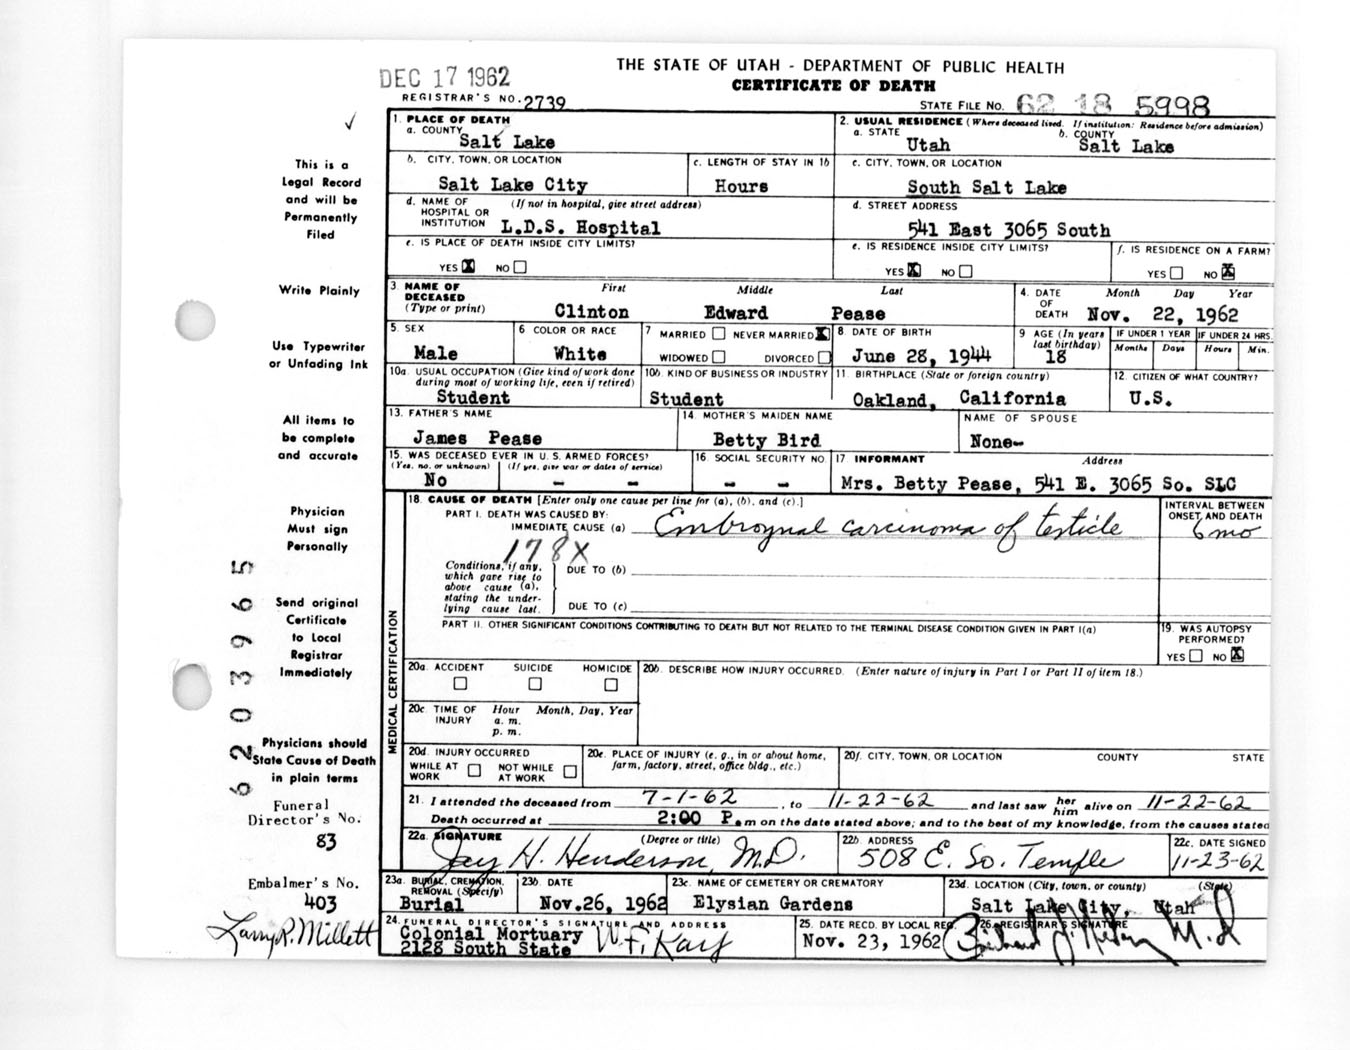 THE STATE OF UTAH - DEPARTMENT OF PUBLIC HEALTH
CERTIFICATE OF DEATH
DEC 17 1962
REGISTRAR'S NO. 2739
STATE FILE NO. 62 18 5998
This is a
Legal Record
and will be
Permanently
Filed
Write Plainly
Use Typewriter
or Unfading Ink
All items to
be complete
and accurate
Physician
Must sign
Personally
Send original
Certificate
to Local
Registrar
Immediately
Physicians should
State Cause of Death
in plain terms
Funeral
Director's No.
83
Embalmer's No.
403
Larry R. Millett
6203965
1. PLACE OF DEATH
a. COUNTY
Salt Lake
2. USUAL RESIDENCE (Where deceased lived. If institution: Residence before admission)
a. STATE
Utah
b. COUNTY
Salt Lake
b. CITY, TOWN, OR LOCATION
Salt Lake City
c. LENGTH OF STAY IN 1b
Hours
c. CITY, TOWN, OR LOCATION
South Salt Lake
d. NAME OF HOSPITAL OR INSTITUTION (If not in hospital, give street address)
L.D.S. Hospital
d. STREET ADDRESS
541 East 3065 South
e. IS PLACE OF DEATH INSIDE CITY LIMITS?
YES X NO
e. IS RESIDENCE INSIDE CITY LIMITS?
YES X NO
f. IS RESIDENCE ON A FARM?
YES NO X
3. NAME OF DECEASED (Type or print)
First Middle Last
Clinton Edward Pease
4. DATE OF DEATH
Month Day Year
Nov. 22, 1962
5. SEX
Male
6 COLOR OR RACE
White
7 MARRIED NEVER MARRIED X
WIDOWED DIVORCED
8. DATE OF BIRTH
June 28, 1944
9 AGE (In years last birthday)
18
IF UNDER 1 YEAR
Months Days
IF UNDER 24 HRS.
Hours Min.
10a. USUAL OCCUPATION (Give kind of work done during most of working life, even if retired)
Student
10b. KIND OF BUSINESS OR INDUSTRY
Student
11. BIRTHPLACE (State or foreign country)
Oakland, California
12. CITIZEN OF WHAT COUNTRY?
U.S.
13. FATHER'S NAME
James Pease
14. MOTHER'S MAIDEN NAME
Betty Bird
NAME OF SPOUSE
None-
15. WAS DECEASED EVER IN U. S. ARMED FORCES?
(Yes, no, or unknown) (If yes, give war or dates of service)
No - -
16. SOCIAL SECURITY NO.
- -
17. INFORMANT Address
Mrs. Betty Pease, 541 E. 3065 So. SLC
MEDICAL CERTIFICATION
18. CAUSE OF DEATH [Enter only one cause per line for (a), (b), and (c).]
PART I. DEATH WAS CAUSED BY:
IMMEDIATE CAUSE (a) Embroynal carcinoma of testicle
INTERVAL BETWEEN ONSET AND DEATH
6 mo
178X
Conditions, if any, which gave rise to above cause (a), stating the underlying cause last.
DUE TO (b)
DUE TO (c)
PART II. OTHER SIGNIFICANT CONDITIONS CONTRIBUTING TO DEATH BUT NOT RELATED TO THE TERMINAL DISEASE CONDITION GIVEN IN PART I(a)
19. WAS AUTOPSY PERFORMED?
YES NO X
20a. ACCIDENT SUICIDE HOMICIDE
20b. DESCRIBE HOW INJURY OCCURRED. (Enter nature of injury in Part I or Part II of item 18.)
20c. TIME OF INJURY
Hour Month, Day, Year
a. m.
p. m.
20d. INJURY OCCURRED
WHILE AT WORK NOT WHILE AT WORK
20e. PLACE OF INJURY (e. g., in or about home, farm, factory, street, office bldg., etc.)
20f. CITY, TOWN, OR LOCATION COUNTY STATE
21. I attended the deceased from 7-1-62, to 11-22-62 and last saw her him alive on 11-22-62
Death occurred at 2:00 P.m on the date stated above; and to the best of my knowledge, from the causes stated
22a. SIGNATURE (Degree or title)
Jay H. Henderson, M.D.
22b. ADDRESS
508 E. So. Temple
22c. DATE SIGNED
11-23-62
23a. BURIAL, CREMATION, REMOVAL (Specify)
Burial
23b. DATE
Nov.26, 1962
23c. NAME OF CEMETERY OR CREMATORY
Elysian Gardens
23d. LOCATION (City, town, or county) (State)
Salt Lake City, Utah
24. FUNERAL DIRECTOR'S SIGNATURE AND ADDRESS
Colonial Mortuary
2128 South State
25. DATE RECD. BY LOCAL REG.
Nov. 23, 1962
26. REGISTRAR'S SIGNATURE
M.D